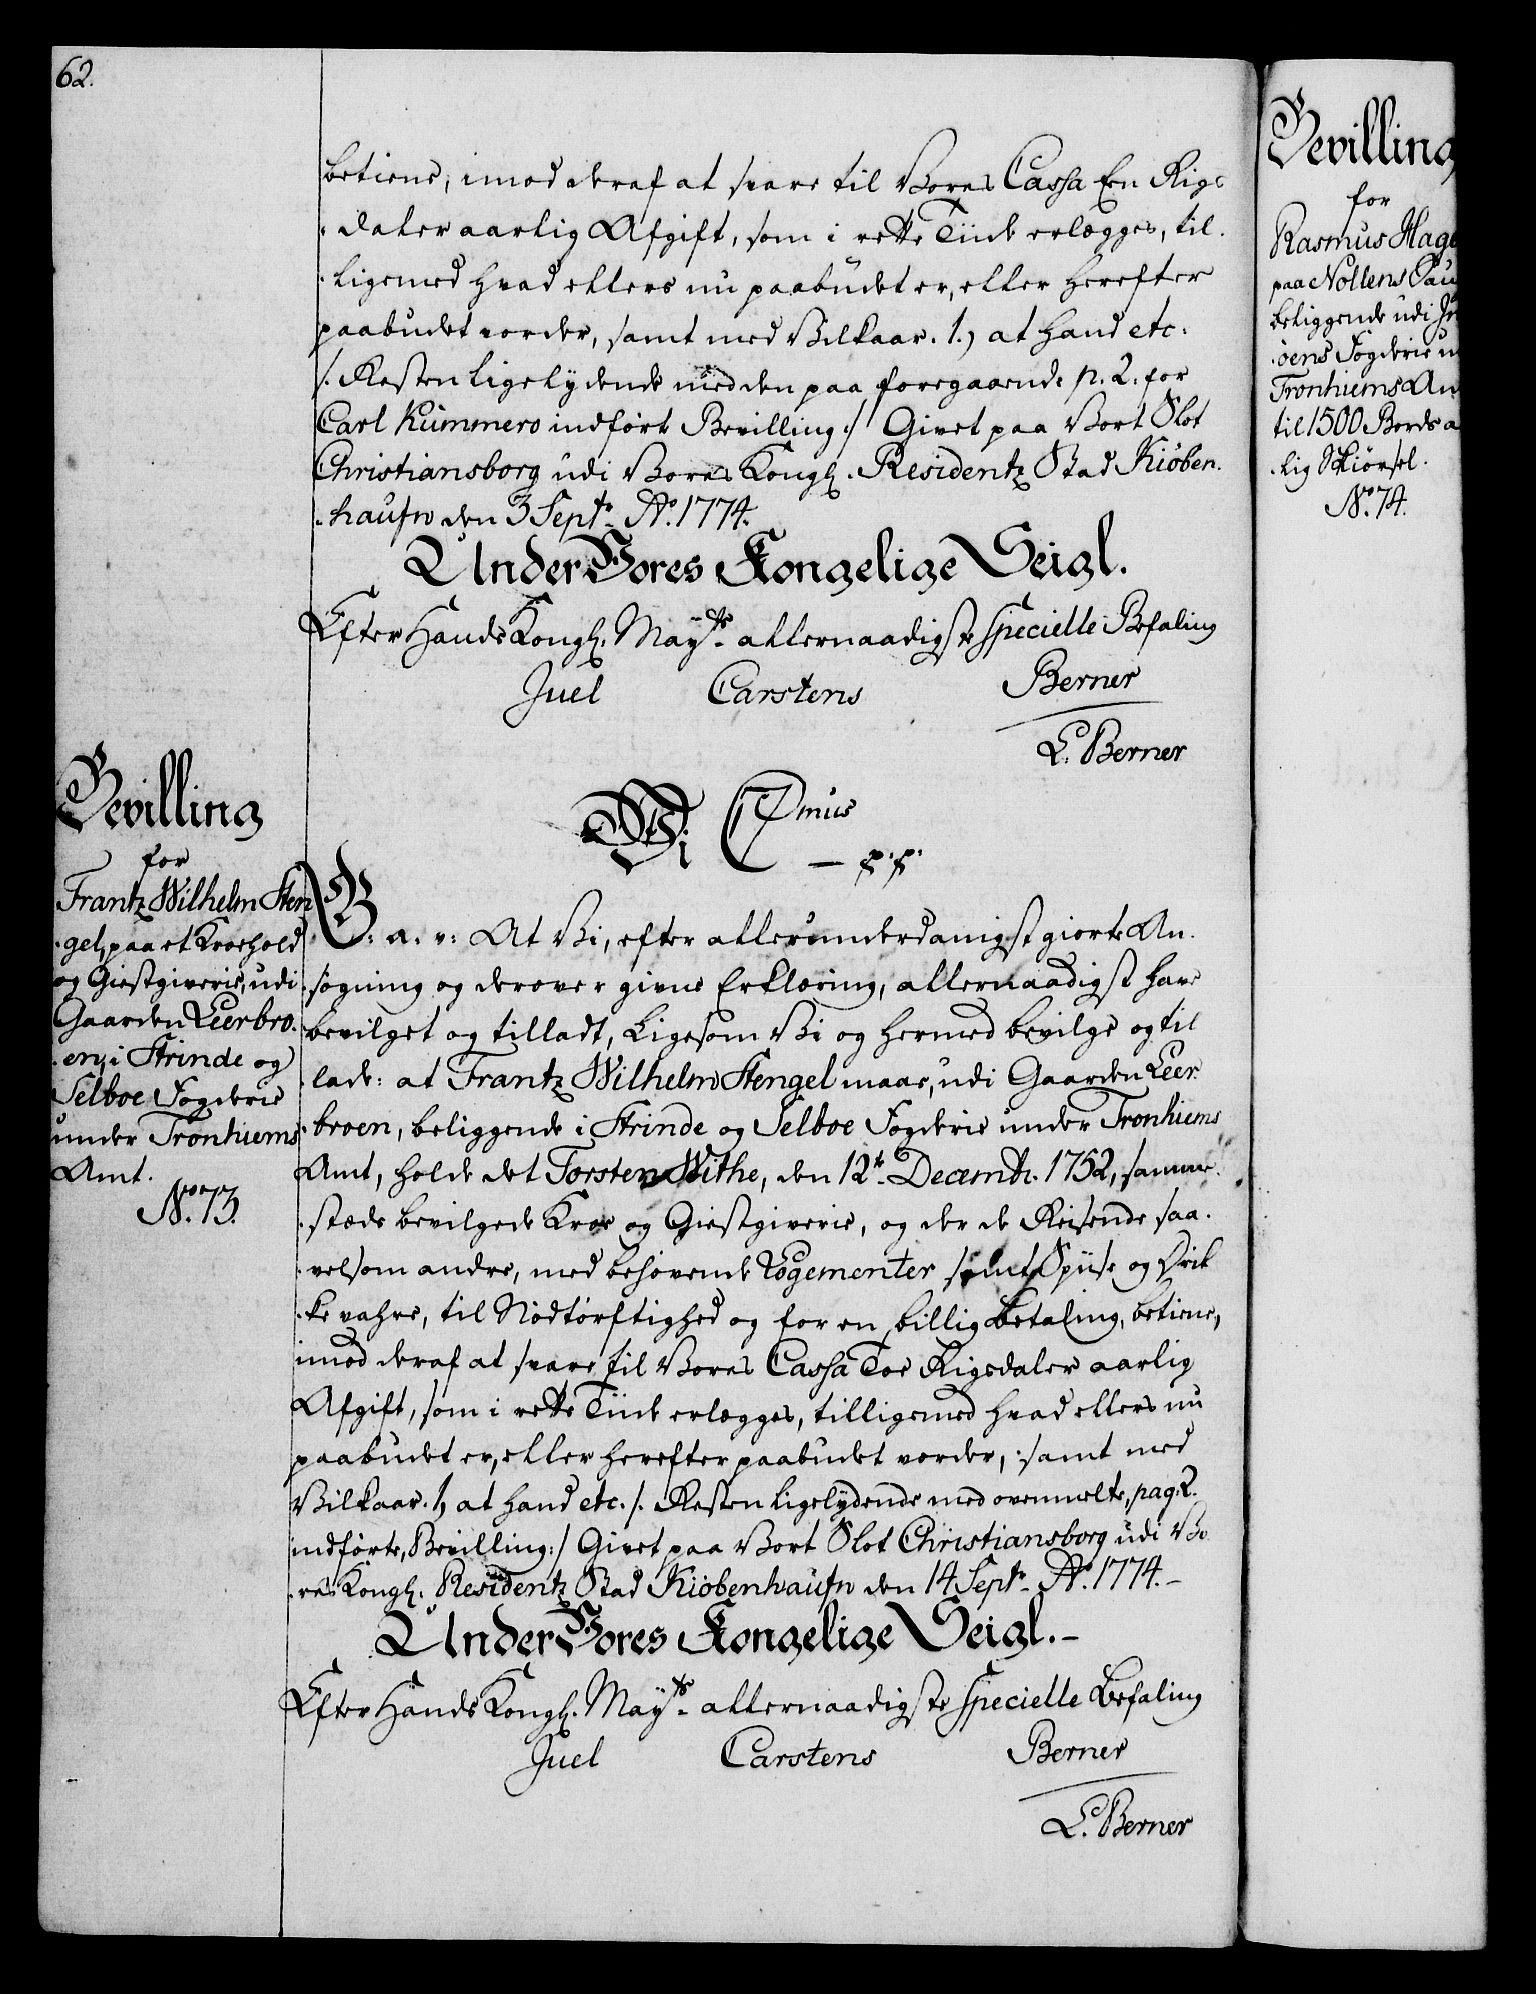 62.
betiene, imod deraf at svare til Vores Cassa Een Rigs
daler aarlig Afgift, som i rette Tiide erlægges, til-
ligemed hvad ellers nu paabudet er, eller herefter
paabudet vorder, samt med Vilkaar. 1.) at hand etc:
/: Resten ligelydende med den paa foregaaende p. 2. for
Carl Kümmers indførte Bevilling :/ Givet paa Vort Slot
Christiansborg udi Vores Kongl. Residentz Stad Kiöben-
haufn den 3 Septr. Ao. 1774.
Under Vores Kongelige Seigl.
Efter Hands Kongl. Mayts. allernaadigste specielle Befaling
Juel Carstens Berner
L. Berner
Bevilling
for
Frantz Wilhelm Sten
gel, paa et Kroehold
og Giestgiverie, udi
Gaarden Leerbro-
en, i Strinde og
Selboe Fogderie
under Tronhiems
Amt.
No. 73.
Vi C 7mus
— p. p.
G: a. v: At Vi, efter allerunderdanigst giorte An-
søgning og derover givne Erklæring, allernaadigst have
bevilget og tilladt, ligesom Vi og hermed bevilge og til
lade: at Frantz Wilhelm Stengel maae, udi Gaarden Leer-
broen, beliggende i Strinde og Selboe Fogderie under Tronhiems
Amt, holde det Torsten Withe, den 12te Decembr. 1752, samme-
stæds bevilgede Kroe og Giestgiverie, og der de Reisende saa-
velsom andre, med behøvende Logementer samt Spiise og Drik
ke vahre, til Nødtørftighed og for en billig Betaling, betiene,
imod deraf at svare til Vores Cassa Toe Rigsdaler aarlig
Afgift, som i rette Tiide erlægges, tilligemed hvad ellers nu
paabudet er, eller herefter paabudet vorder, samt med
Vilkaar. 1) at hand etc. /: Resten ligelydende med ovenmelte, pag. 2.
indførte, Bevilling :/ Givet paa Vort Slot Christiansborg udi Vo
res Kongl. Residentz Stad Kiöbenhaufn den 14 Septr. Ao. 1774.-
Under Vores Kongelige Seigl.-
Efter Hands Kongl. Mayts. allernaadigste specielle Befaling
Juel Carstens Berner
L. Berner
Bevilling
for
Rasmus Hage
paa Nollens
beliggende udi
öens Fogderie
Tronhiems
til 1500 Bords
lig Skiörsel.
No. 74.